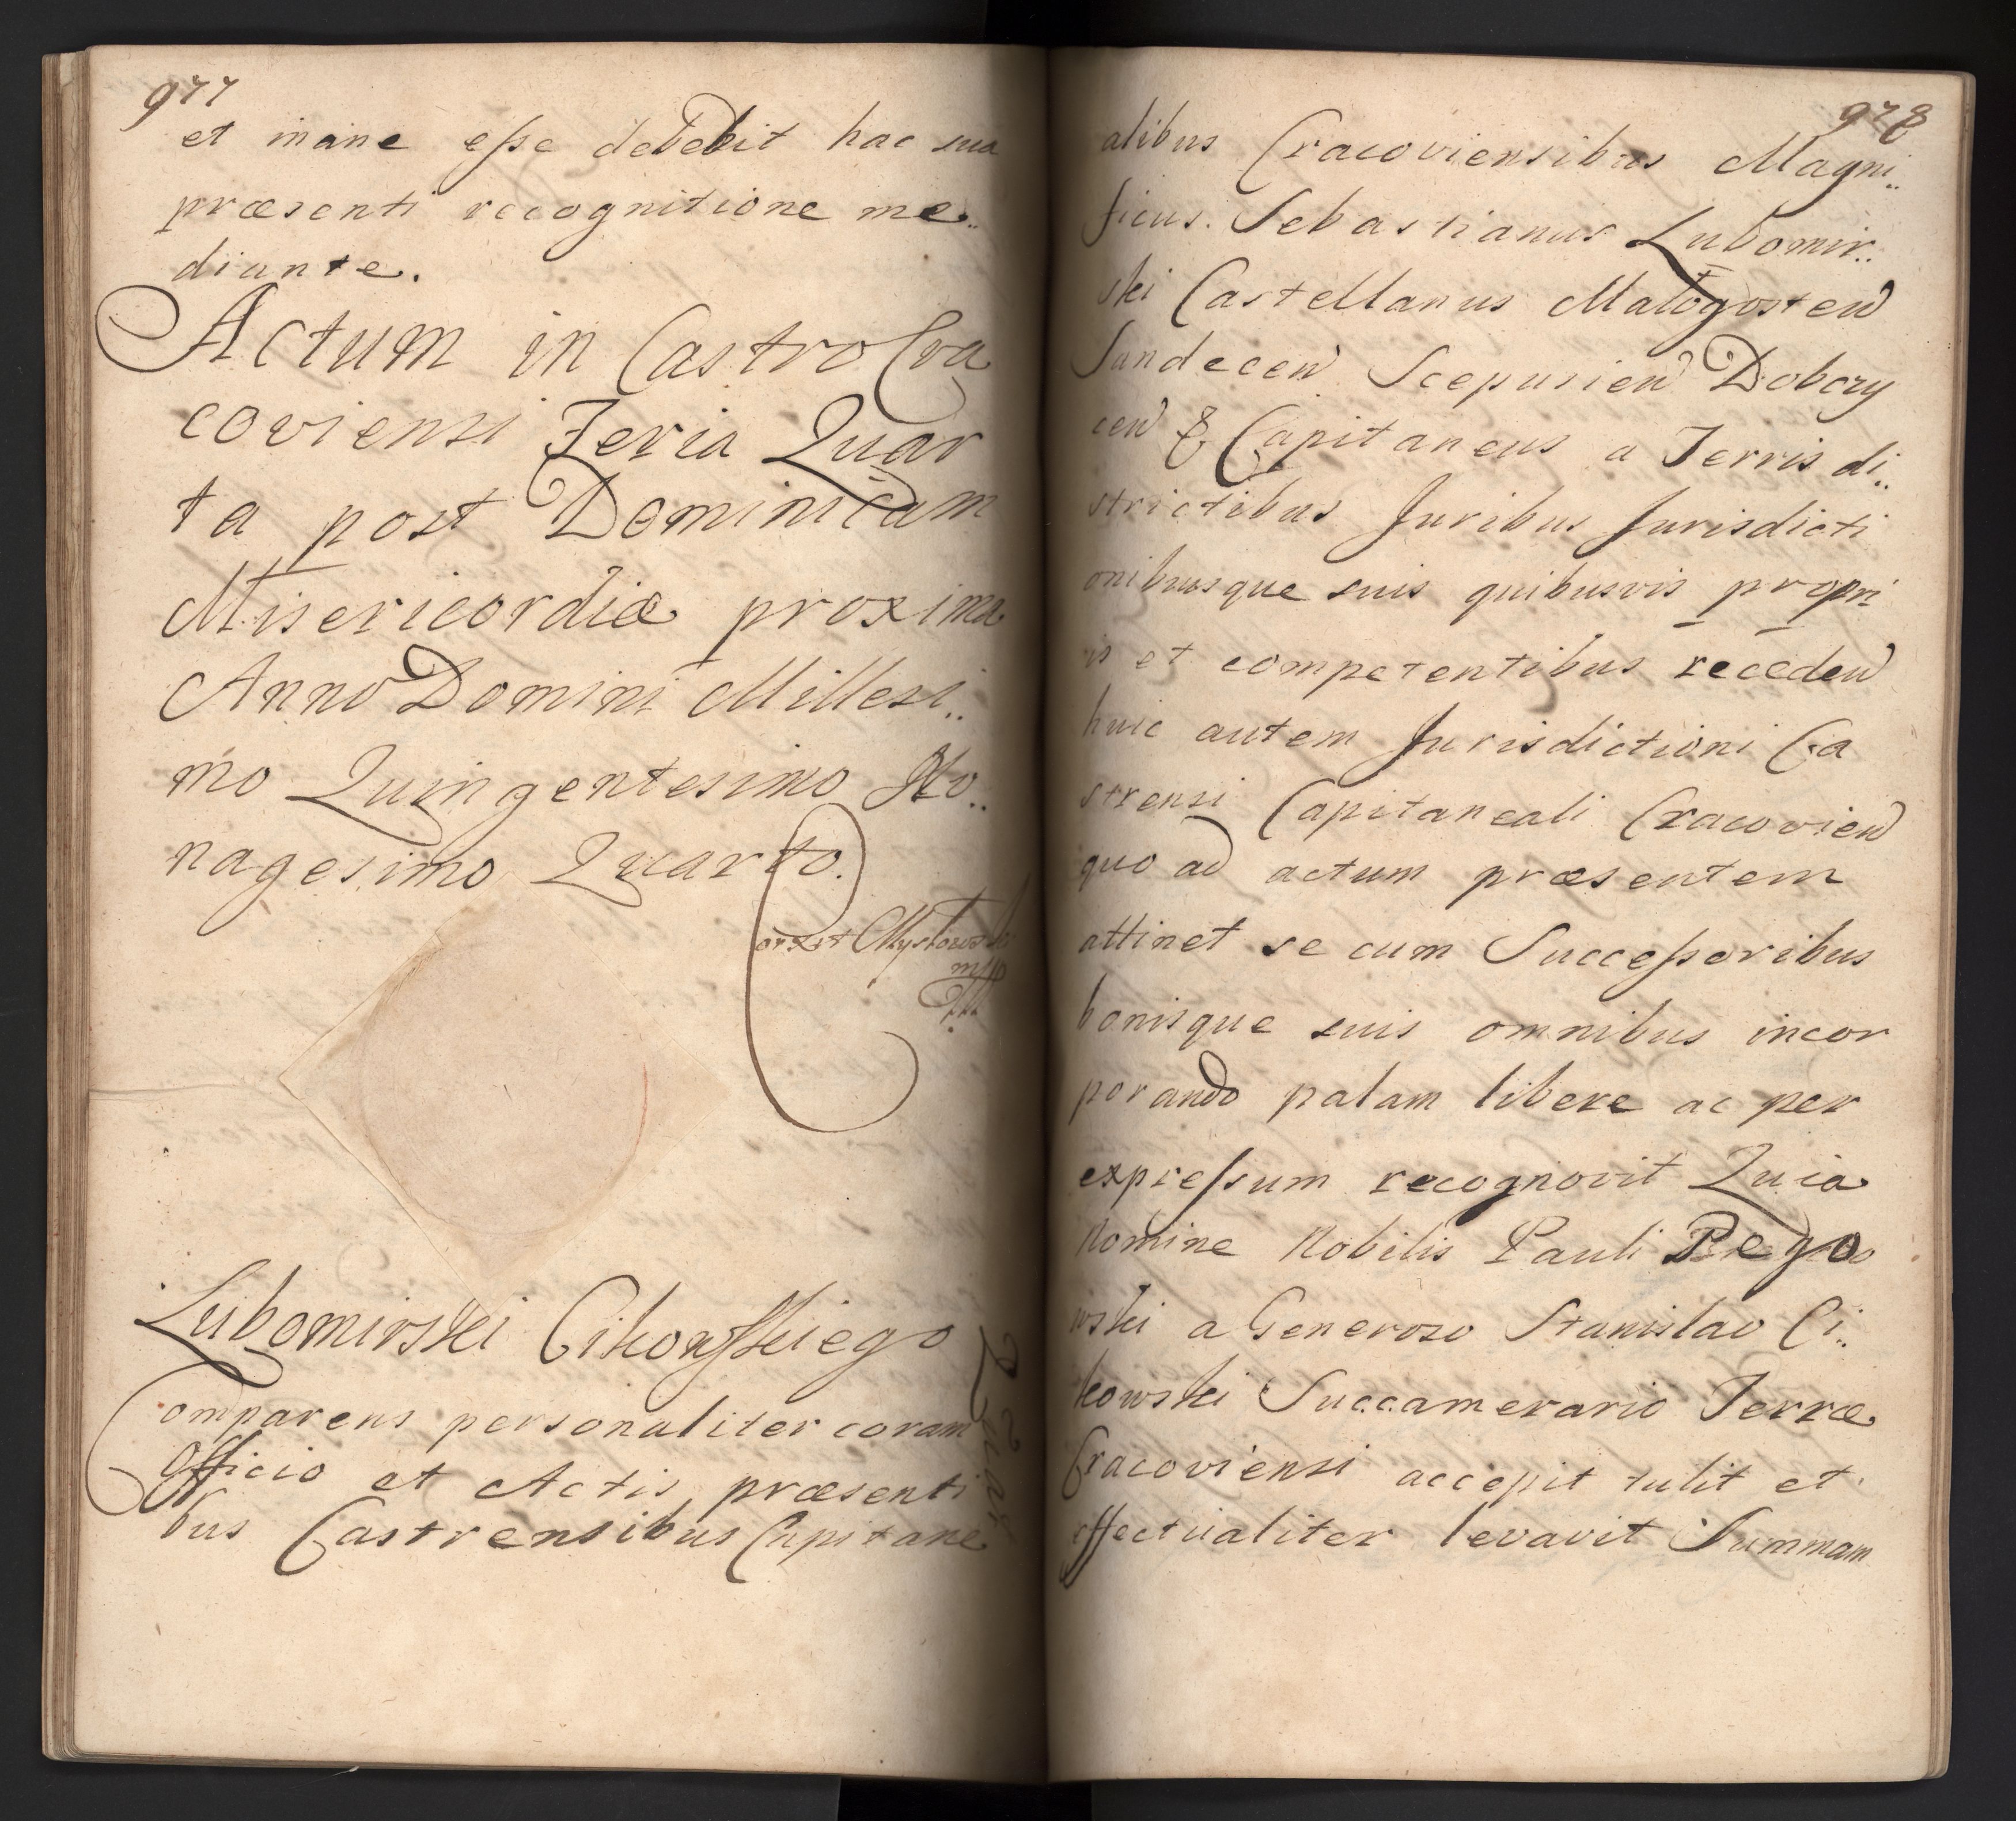 977
et inane esse debebit hac sua
præsenti recognitione me..
diante.
Actum in Castro Cra
coviensi Feria Quar
ta post Dominicam
Misericordiæ proxima
Anno Domini Millesi..
mo Quingentesimo No..
nagesimo Quarto.
mpp
Lubomirski Cikowskiego
Quiet
Comparens personaliter coram
Officio et Actis præsenti
bus Castrensibus Capitane
978
alibus Cracoviensibus Magni..
ficus. Sebastianus Lubomir..
ski Castellanus Malogosten
Sandecen Scepusien Dobczy
cen & Capitaneus a Terris di..
strictibus Juribus Jurisdicti
onibusque suis quibusvis propri
is et competentibus receden
huic autem Jurisdictioni Ca
strensi Capitaneali Cracovien
quo ad actum præsentem
attinet se cum Successoribus
bonisque suis omnibus incor
porando palam libere ac per
expressum recognovit Quia
Nomine Nobilis Pauli Pego
wski a Generoso Stanislao Ci..
kowski Succamerario Terræ
Cracoviensi accepit tulit et
effectualiter levavit Summam